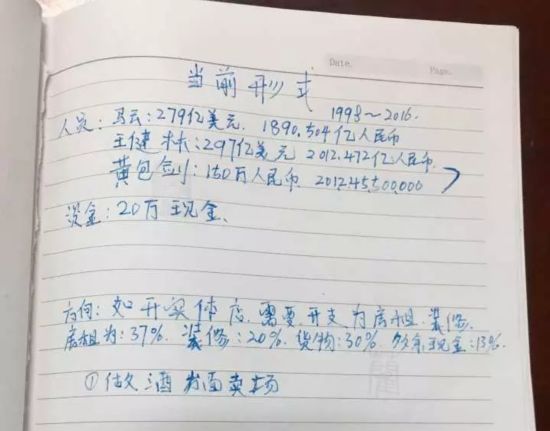 Date.
Page.
当前形式
1998～2016.
人员：马云：279亿美元. 1890.504亿人民币
王健林：297亿美元 2012.472亿人民币.
黄包创：150万人民币. 2012.45500,000
资金：20万现金.
方向：如开实体店需要开支为房租.装修.
房租为：37%. 装修：20%. 货物：30%. 现金：13%.
①做酒 卖场